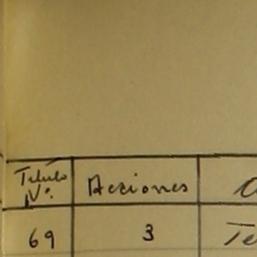 Título Acciones
Nº.
69 3 Te